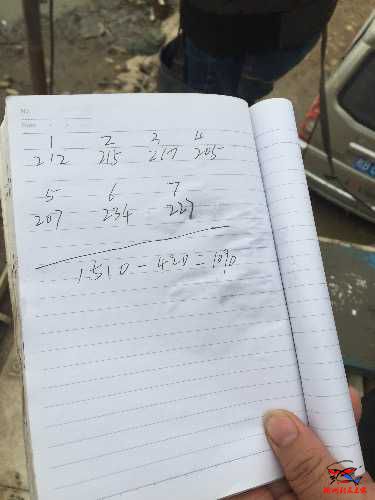 NO.
Date
1 2 3 4
212 215 217 205
5 6 7
207 234 227
1510 - 420 = 1090